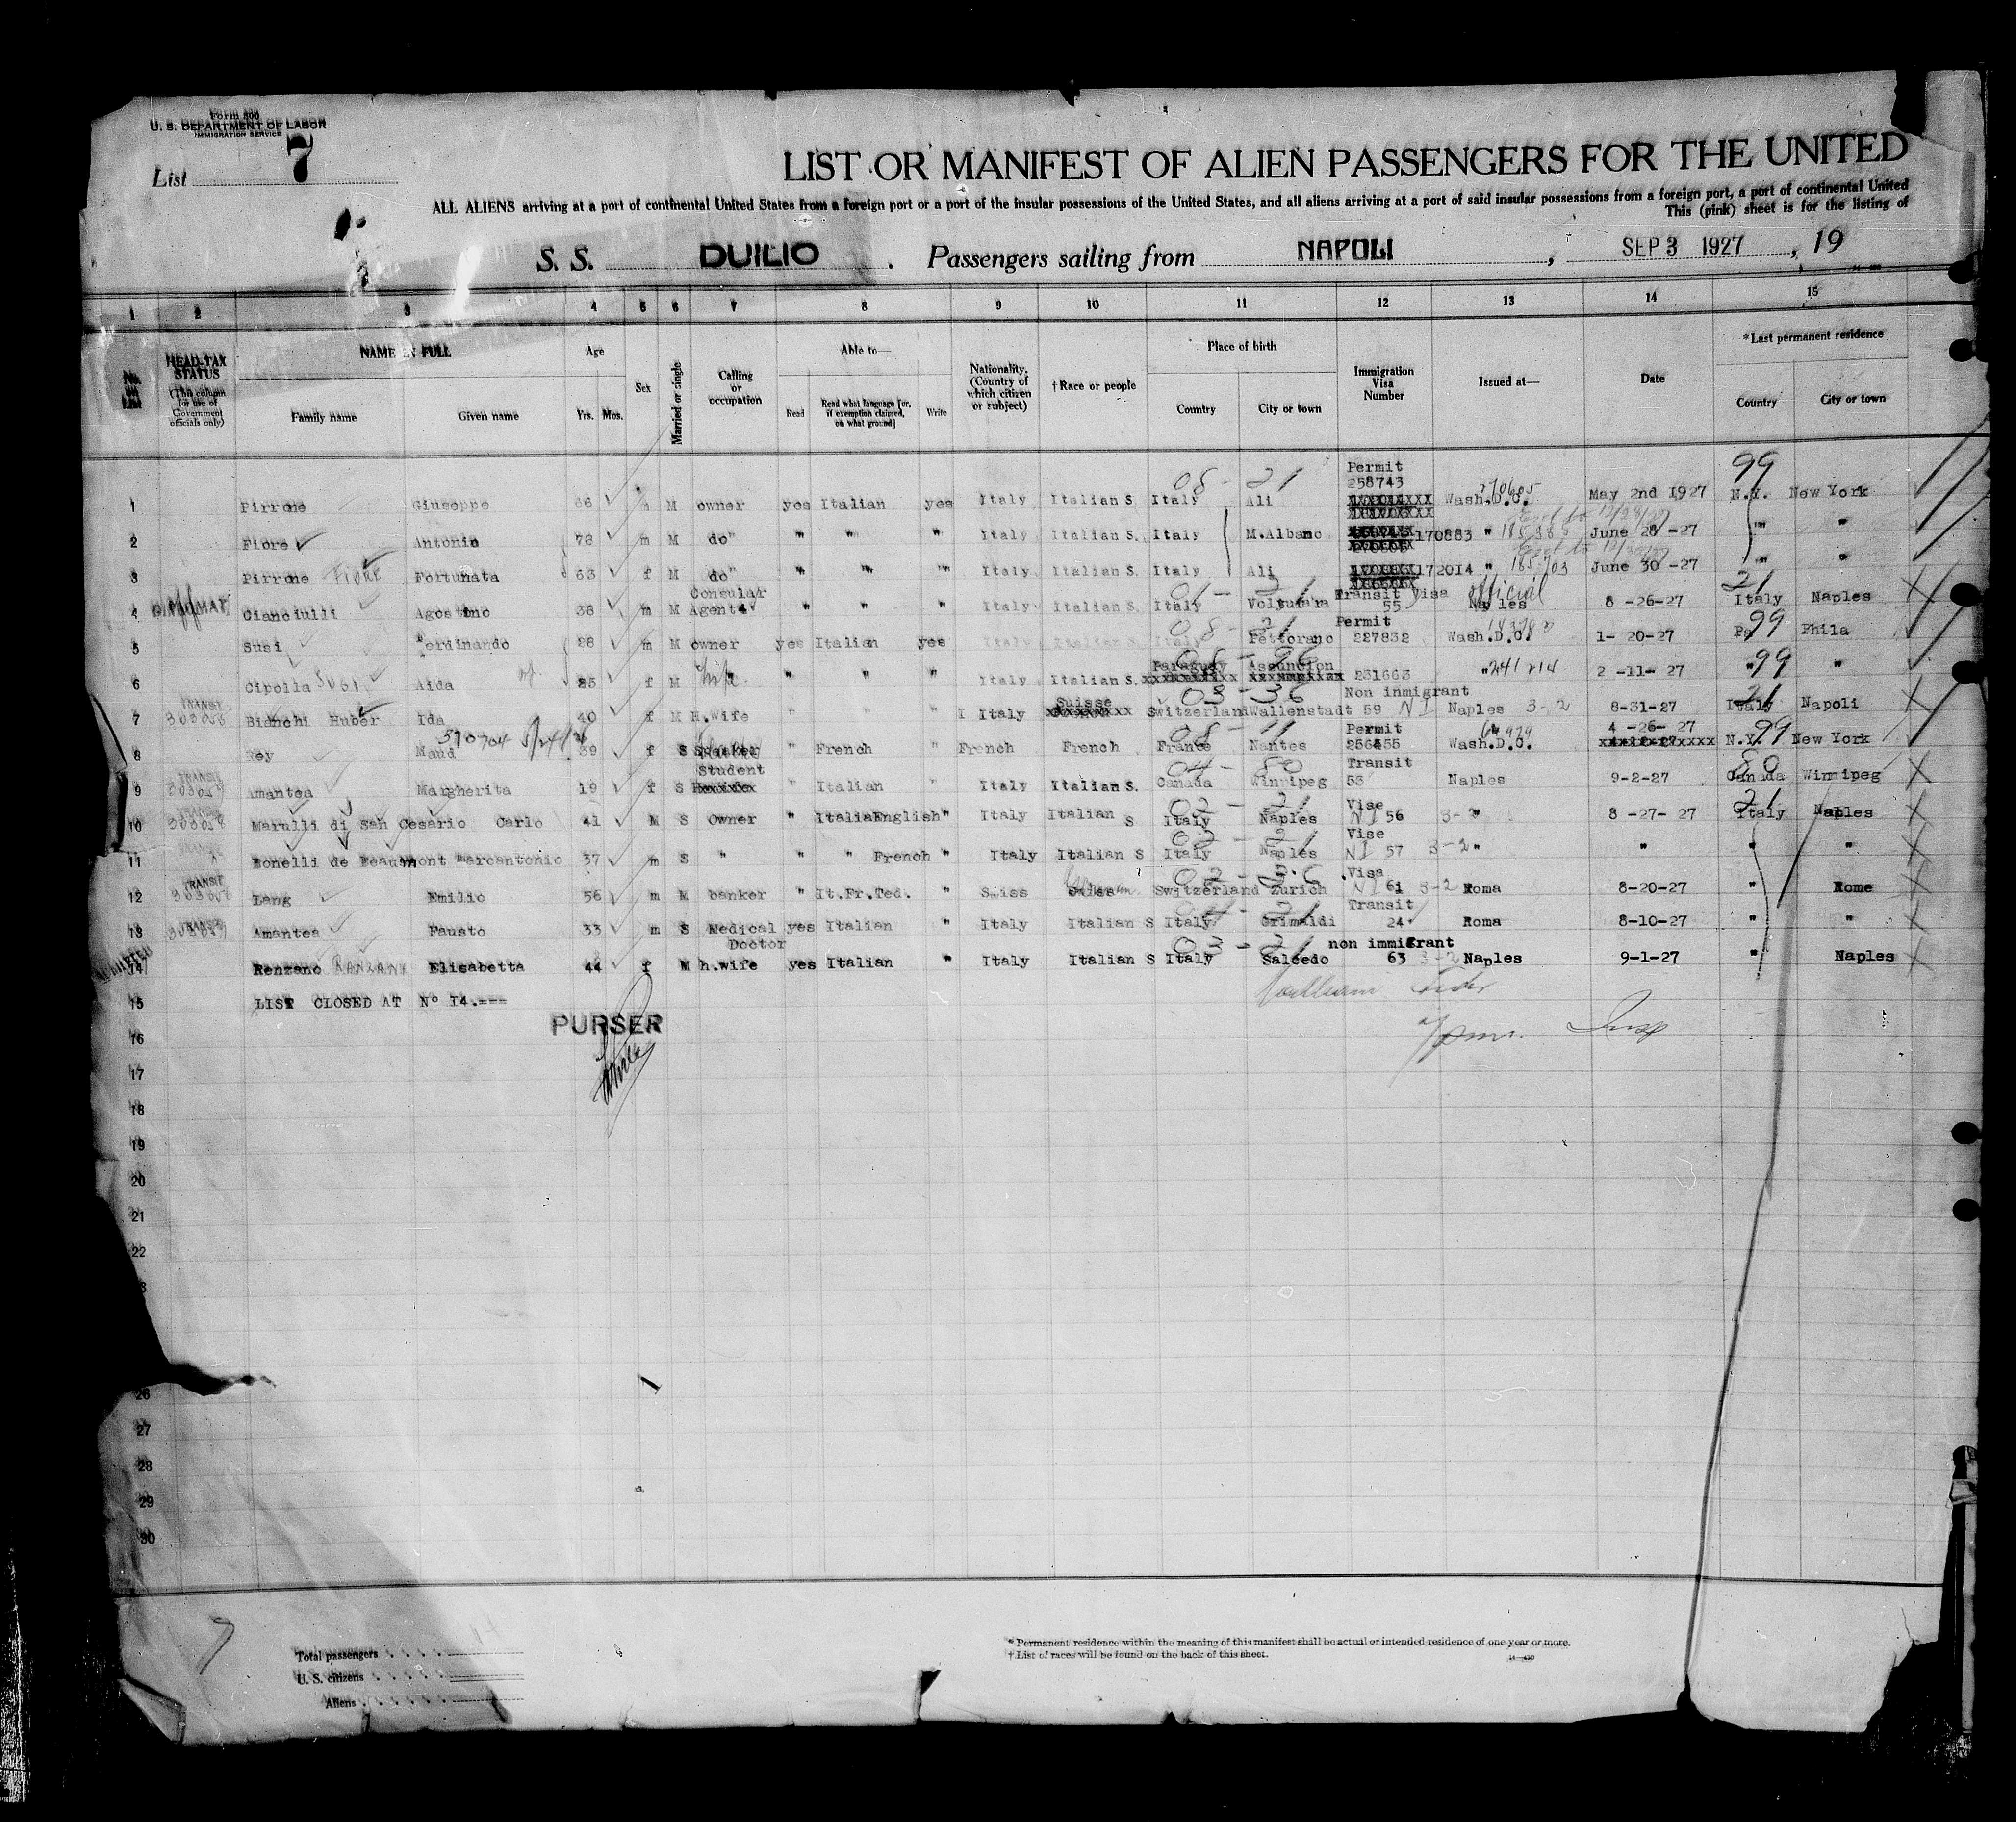 Form 500
U. S. DEPARTMENT OF LABOR
IMMIGRATION SERVICE
List 7
LIST OR MANIFEST OF ALIEN PASSENGERS FOR THE UNITED
ALL ALIENS arriving at a port of continental United States from a foreign port or a port of the insular possessions of the United States, and all aliens arriving at a port of said insular possessions from a foreign port, a port of continental United
This (pink) sheet is for the listing of
S. S. DUILIO . Passengers sailing from NAPOLI , SEP 3 1927 , 19
1 2 3 4 5 6 7 8 9 10 11 12 13 14 15
No. on List HEAD-TAX STATUS (This column for use of Government officials only) NAME IN FULL Family name Given name Age Yrs. Mos. Sex Married or single Calling or occupation Able to— Read Read what language [or, if exemption claimed, on what ground] Write Nationality. (Country of which citizen or subject) † Race or people Place of birth Country City or town Immigration Visa Number Issued at— Date * Last permanent residence Country City or town
08 - 21 Permit 99
1 Pirrone Giuseppe 66 m M owner yes Italian yes Italy Italian S. Italy Ali 258743 Wash.D.C. May 2nd 1927 N.Y. New York
2 Fiore Antonio 78 m M do" " " " Italy Italian S. Italy M.Albano 170883 " June 28 -27 " "
3 Pirrone Fiore Fortunata 63 f M do" " " " Italy Italian S. Italy Ali 172014 " June 30 -27 " "
4 DIPLOMAT Cianciulli Agostino 38 m M Consular Agent " " " Italy Italian S. Italy Volturara Transit Visa 55 official Naples 8 -26-27 21 Italy Naples
5 Susi Ferdinando 28 m M owner yes Italian yes Italy Italian S Italy Pettorano Permit 227832 Wash.D.C. 1- 20-27 Pa 99 Phila
6 Cipolla Susi Aida 25 f M Wife " " " Italy Italian S. Paraguay Assuncion 231663 " 241214 2 -11- 27 " 99 "
7 TRANSIT Bianchi Huber Ida 40 f M H.Wife " " " I Italy Suisse Switzerland Wallenstadt Non inmigrant 59 NI Naples 3-2 8-31-27 21 Italy Napoli
8 Rey Maud 39 f S " French " French French France Nantes Permit 256455 Wash.D.C. 4 -26- 27 N.Y. 99 New York
9 TRANSIT Amantea Margherita 19 f S Student " Italian " Italy Italian S. Canada Winnipeg Transit 53 Naples 9-2-27 80 Canada Winnipeg
10 TRANSIT Marulli di San Cesario Carlo 41 M S Owner " Italian English " Italy Italian S Italy Naples Vise NI 56 3-2 " 8 -27- 27 21 Italy Naples
11 Bonelli de Beaumont Marcantonio 37 m S " " " French " Italy Italian S Italy Naples Vise NI 57 3-2 " " " "
12 TRANSIT Lang Emilio 56 m M banker " It.Fr.Ted. " Suiss German Switzerland Zurich Visa NI 61 3-2 Roma 8-20-27 " Rome
13 TRANSIT Amantea Fausto 33 m S Medical Doctor yes Italian " Italy Italian S Italy Grimaldi Transit 24 Roma 8-10-27 " "
14 Renzano Elisabetta 44 f M h.wife yes Italian " Italy Italian S Italy Salcedo non immigrant 63 3-2 Naples 9-1-27 " Naples
15 LIST CLOSED AT No 14.---
PURSER
16
17
18
19
20
21
22
26
27
28
29
30
Total passengers
U. S. citizens
Aliens
* Permanent residence within the meaning of this manifest shall be actual or intended residence of one year or more.
† List of races will be found on the back of this sheet.